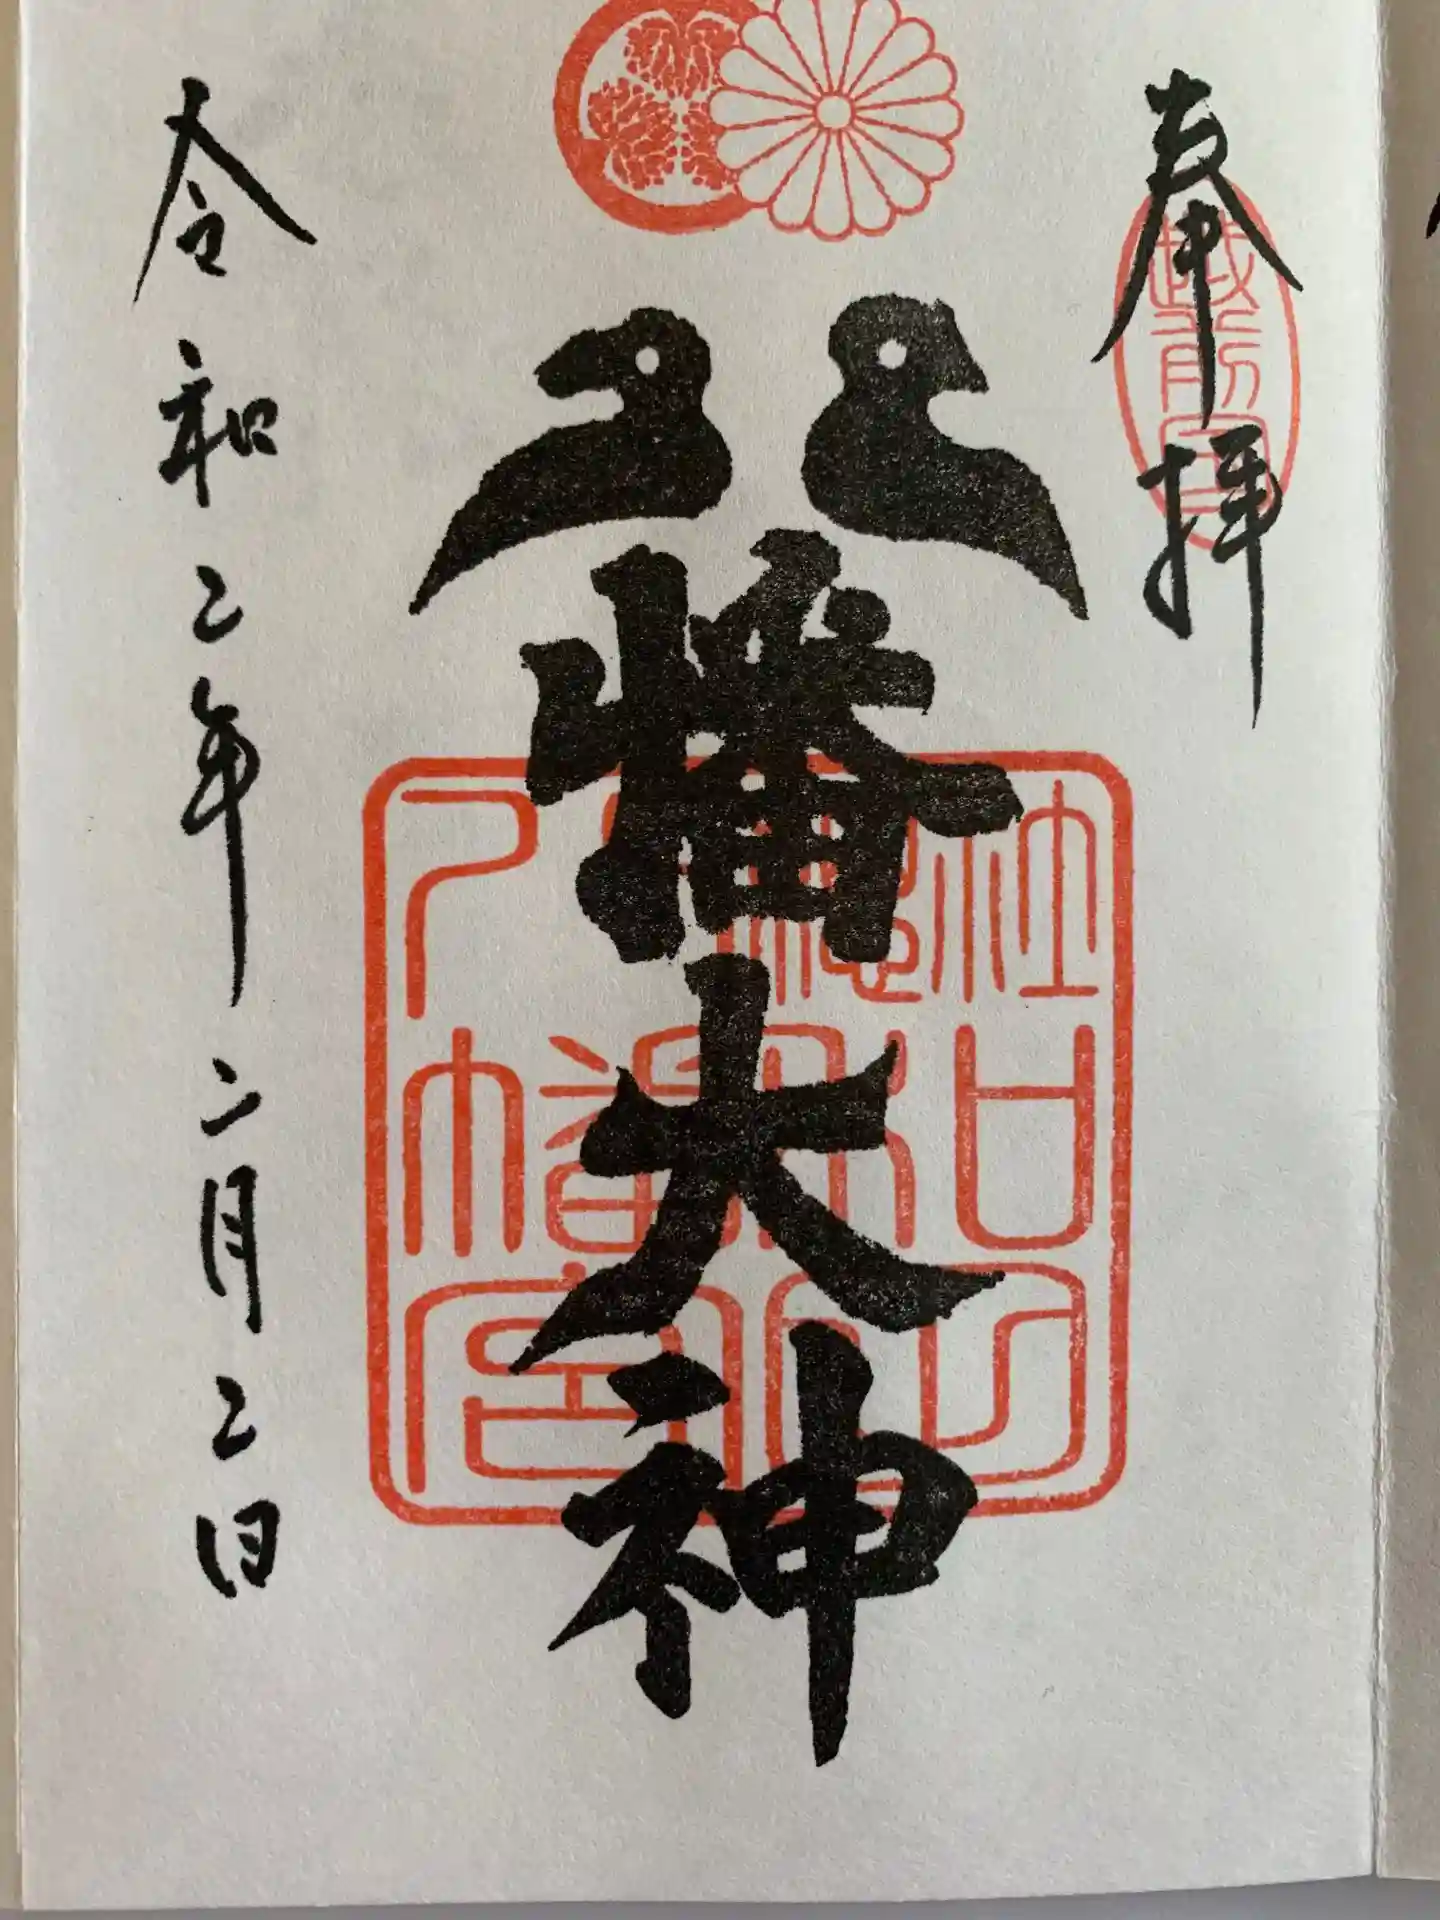 奉拝
越前国
八幡大神
八幡宮
令和二年二月二日